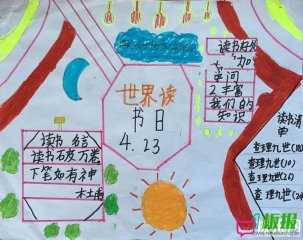 世界读
书日
4.23
读书好处
1加
运河
2丰富
我们的
知识
读书 名言
读书石皮万卷
下笔如有神
木土甫
读书清
单
查理九世(18)
查理九世(10)
查理九世(2)
查理九世(24)
板报